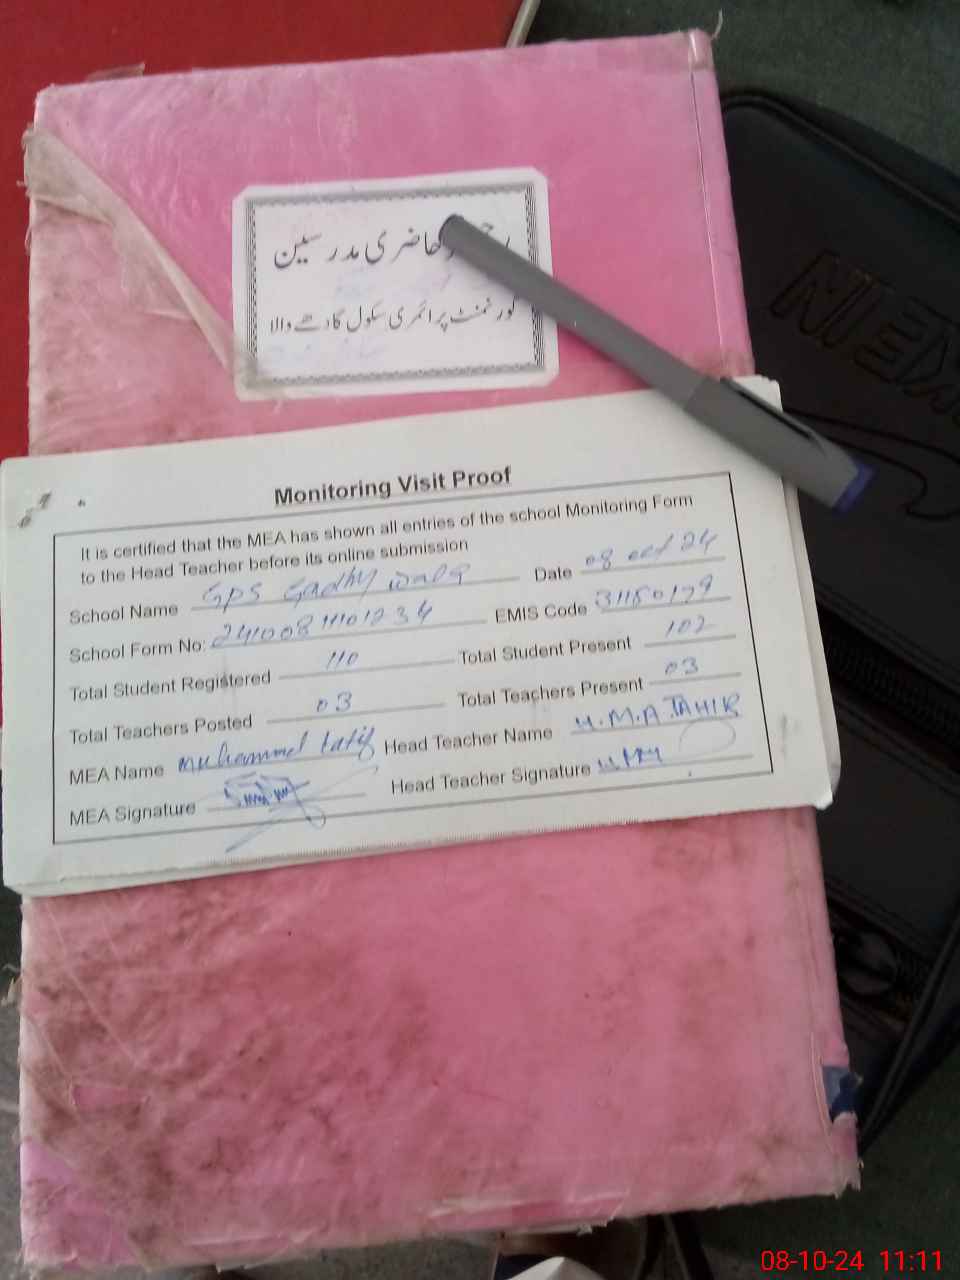 رجسٹر حاضری مدرسین
گورنمنٹ پرائمری سکول گادھے والا
Monitoring Visit Proof
It is certified that the MEA has shown all entries of the school Monitoring Form
to the Head Teacher before its online submission
School Name GPS Gadhy wala Date 08 oct 24
School Form No: EMIS Code 31180179
Total Student Registered 110 Total Student Present 102
Total Teachers Posted 03 Total Teachers Present 03
MEA Name Muhammad Latif Head Teacher Name H.M.A.TAHIR
MEA Signature Head Teacher Signature
08-10-24 11:11